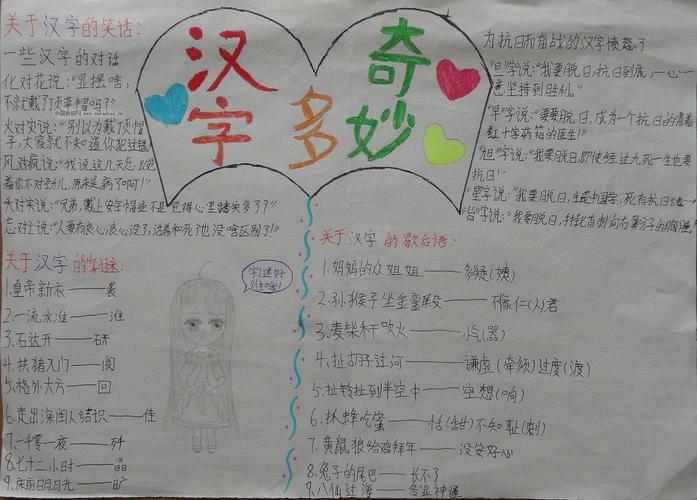 汉字多奇妙
关于汉字的笑话:
一些汉字的对话
化对花说:"显摆啥,
不就戴了顶草帽吗?"
火对灾说:"别以为戴了顶帽
子,大家就不知道你犯过错
风对疯说:"我说这几天怎么觉
着你不对劲儿,原来是病了呵!"
头对实说:"兄弟,戴上安全帽是不是觉得心里踏实多了?"
忘对亡说:"人要有良心,良心没了,活着和死了也没啥区别了!"
关于汉字的字谜:
1.皇帝新衣——袭
2.一流水准——淮
3.石达开——研
4.扶猪入门——阂
5.格外大方——回
6.走出深闺人结识——佳
7.一千零一夜——歼
8.七十二小时——晶
9.床前明月光——旷
字谜好
难哦!
为抗日而奋战的汉字愤怒了
"但"字说:"我要脱日,抗日到底,一心一
意,坚持到胜利。
"早"字说:"我要脱日,成为一个抗日的背着
红十字药箱的医生!"
"旭"字说:"我要脱日,即使经过九死一生也要
抗日!"
"里"字说:"我要脱日,生是中国字,死有抗日
"皆"字说:"我要脱日,手持匕首刺向
关于汉字的歇后语:
1.妈妈的众姐姐——多疑(姨)
2.孙猴子坐金銮殿——不像仁(人)君
3.麦柴秆吹火——小气(器)
4.扯胡子过河——谦虚(牵须)过度(渡)
5.扯铃扯到半空中——空想(响)
6.抓蜂吃蜜——恬(甜)不知耻(刺)
7.黄鼠狼给鸡拜年——没安好心
8.兔子的尾巴——长不了
9.八仙过海——各显神通